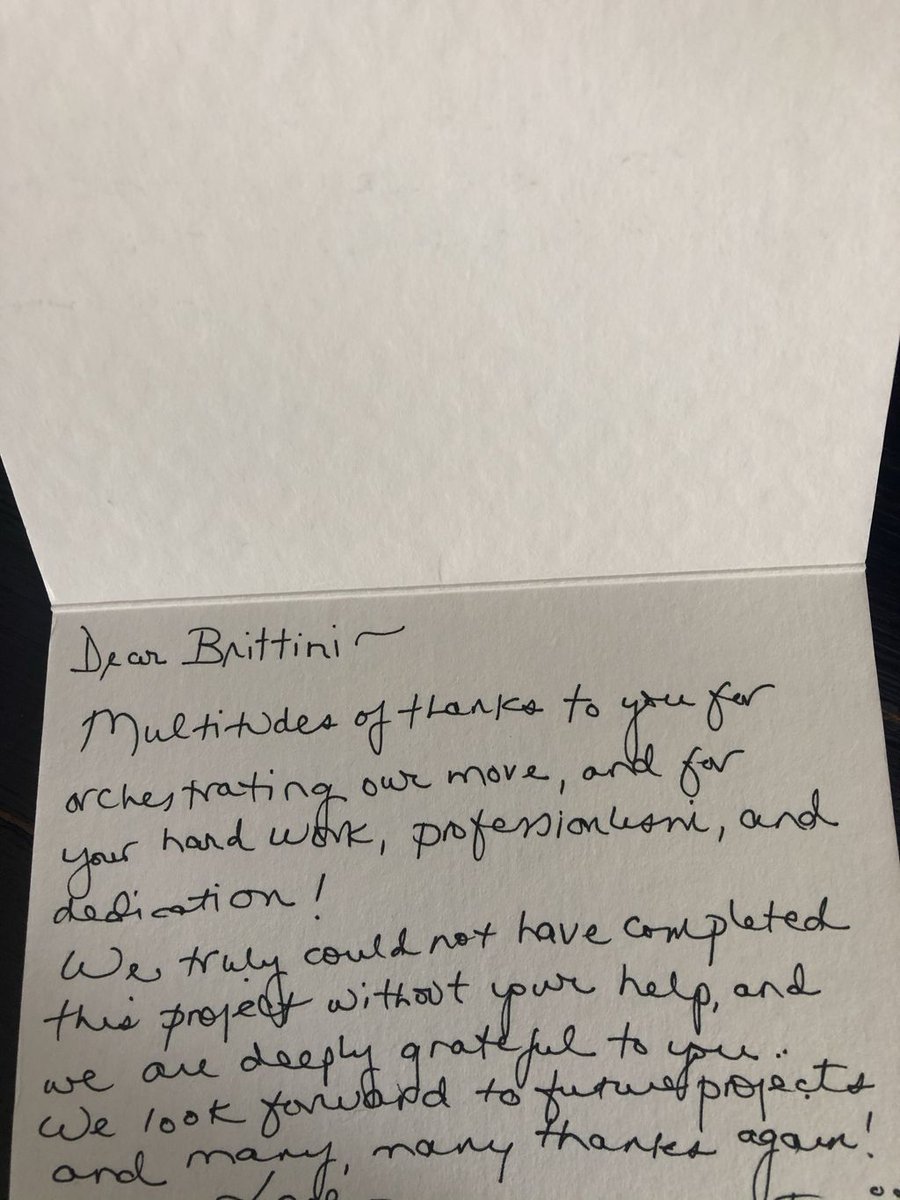 Dear Brittini ~
Multitudes of thanks to you for
orchestrating our move, and for
your hard work, professionalism, and
dedication!
We truly could not have completed
this project without your help, and
we are deeply grateful to you..
We look forward to future projects
and many, many thanks again!